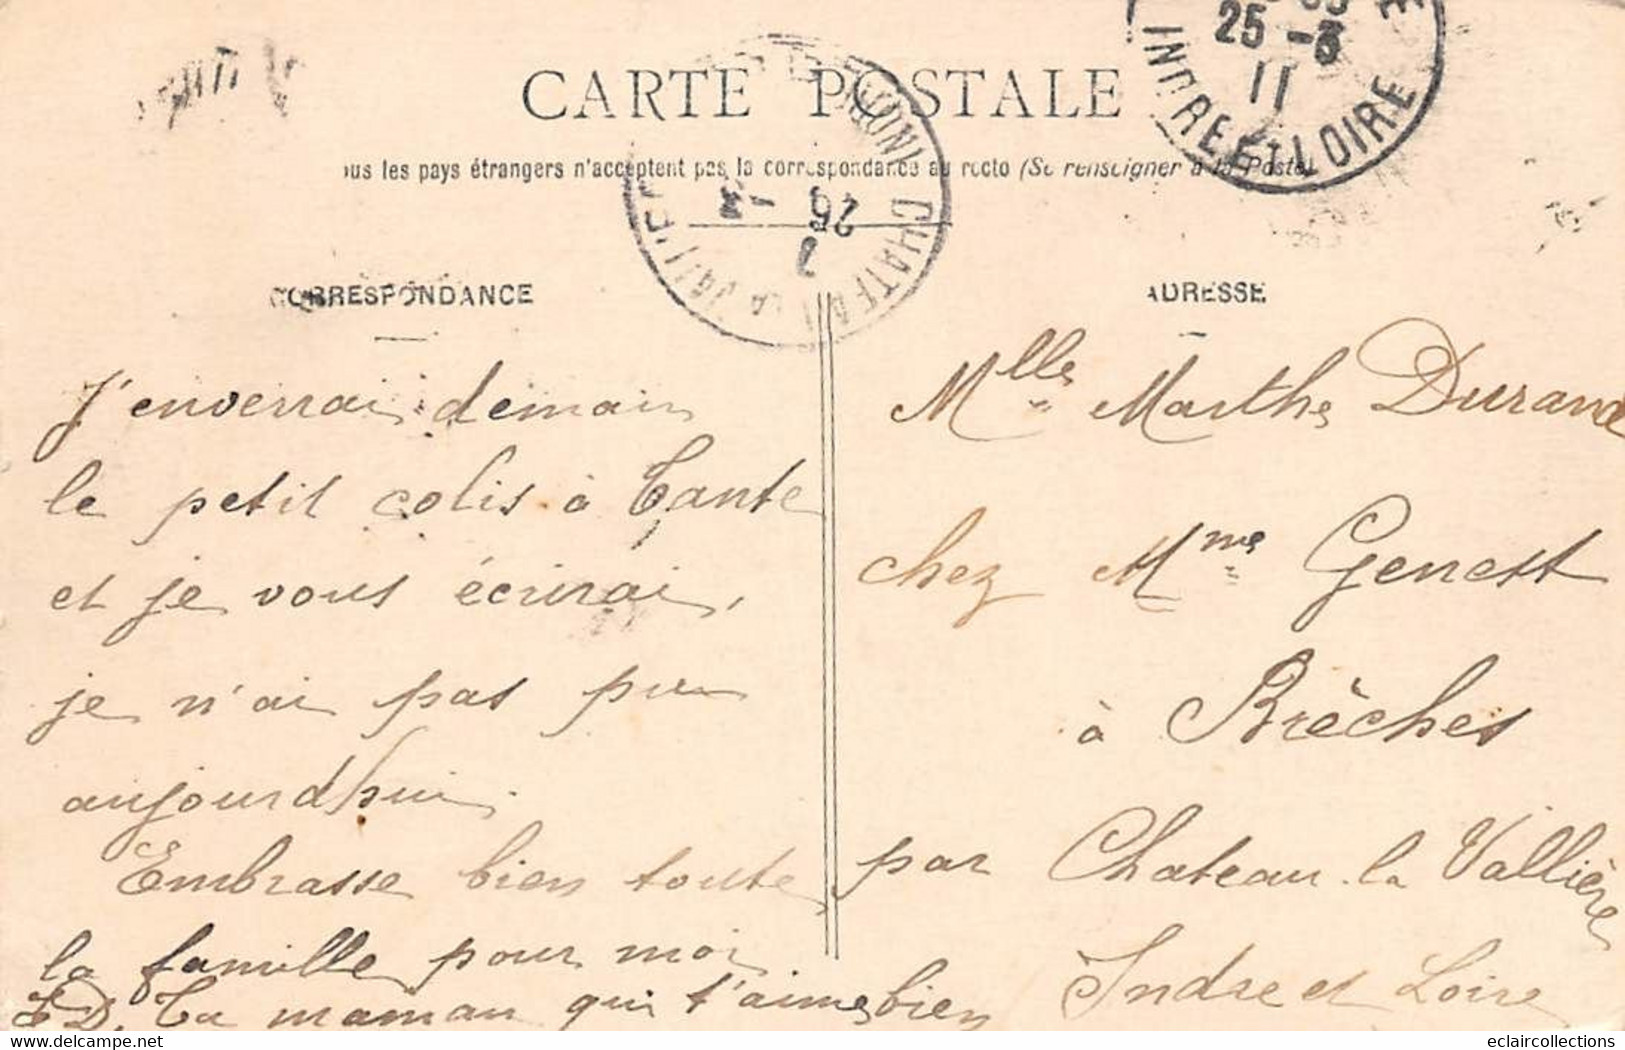 CARTE POSTALE
us les pays étrangers n'acceptent pas la correspondance au recto (Se renseigner à la Poste)
25 -3
11
INDRE ET LOIRE
CHATEAU LA VALLIERE
26 -3
CORRESPONDANCE
ADRESSE
J'enverrai demain
le petit colis à Tante
et je vous écrirai,
je n'ai pas pu
aujourd'hui.
Embrasse bien toute
la famille pour moi
Ta maman qui t'aime bien
Mlle Marthe Durand
chez Mme Genest
à Brèches
par Chateau la Vallière
Indre et Loire
eclaircollections